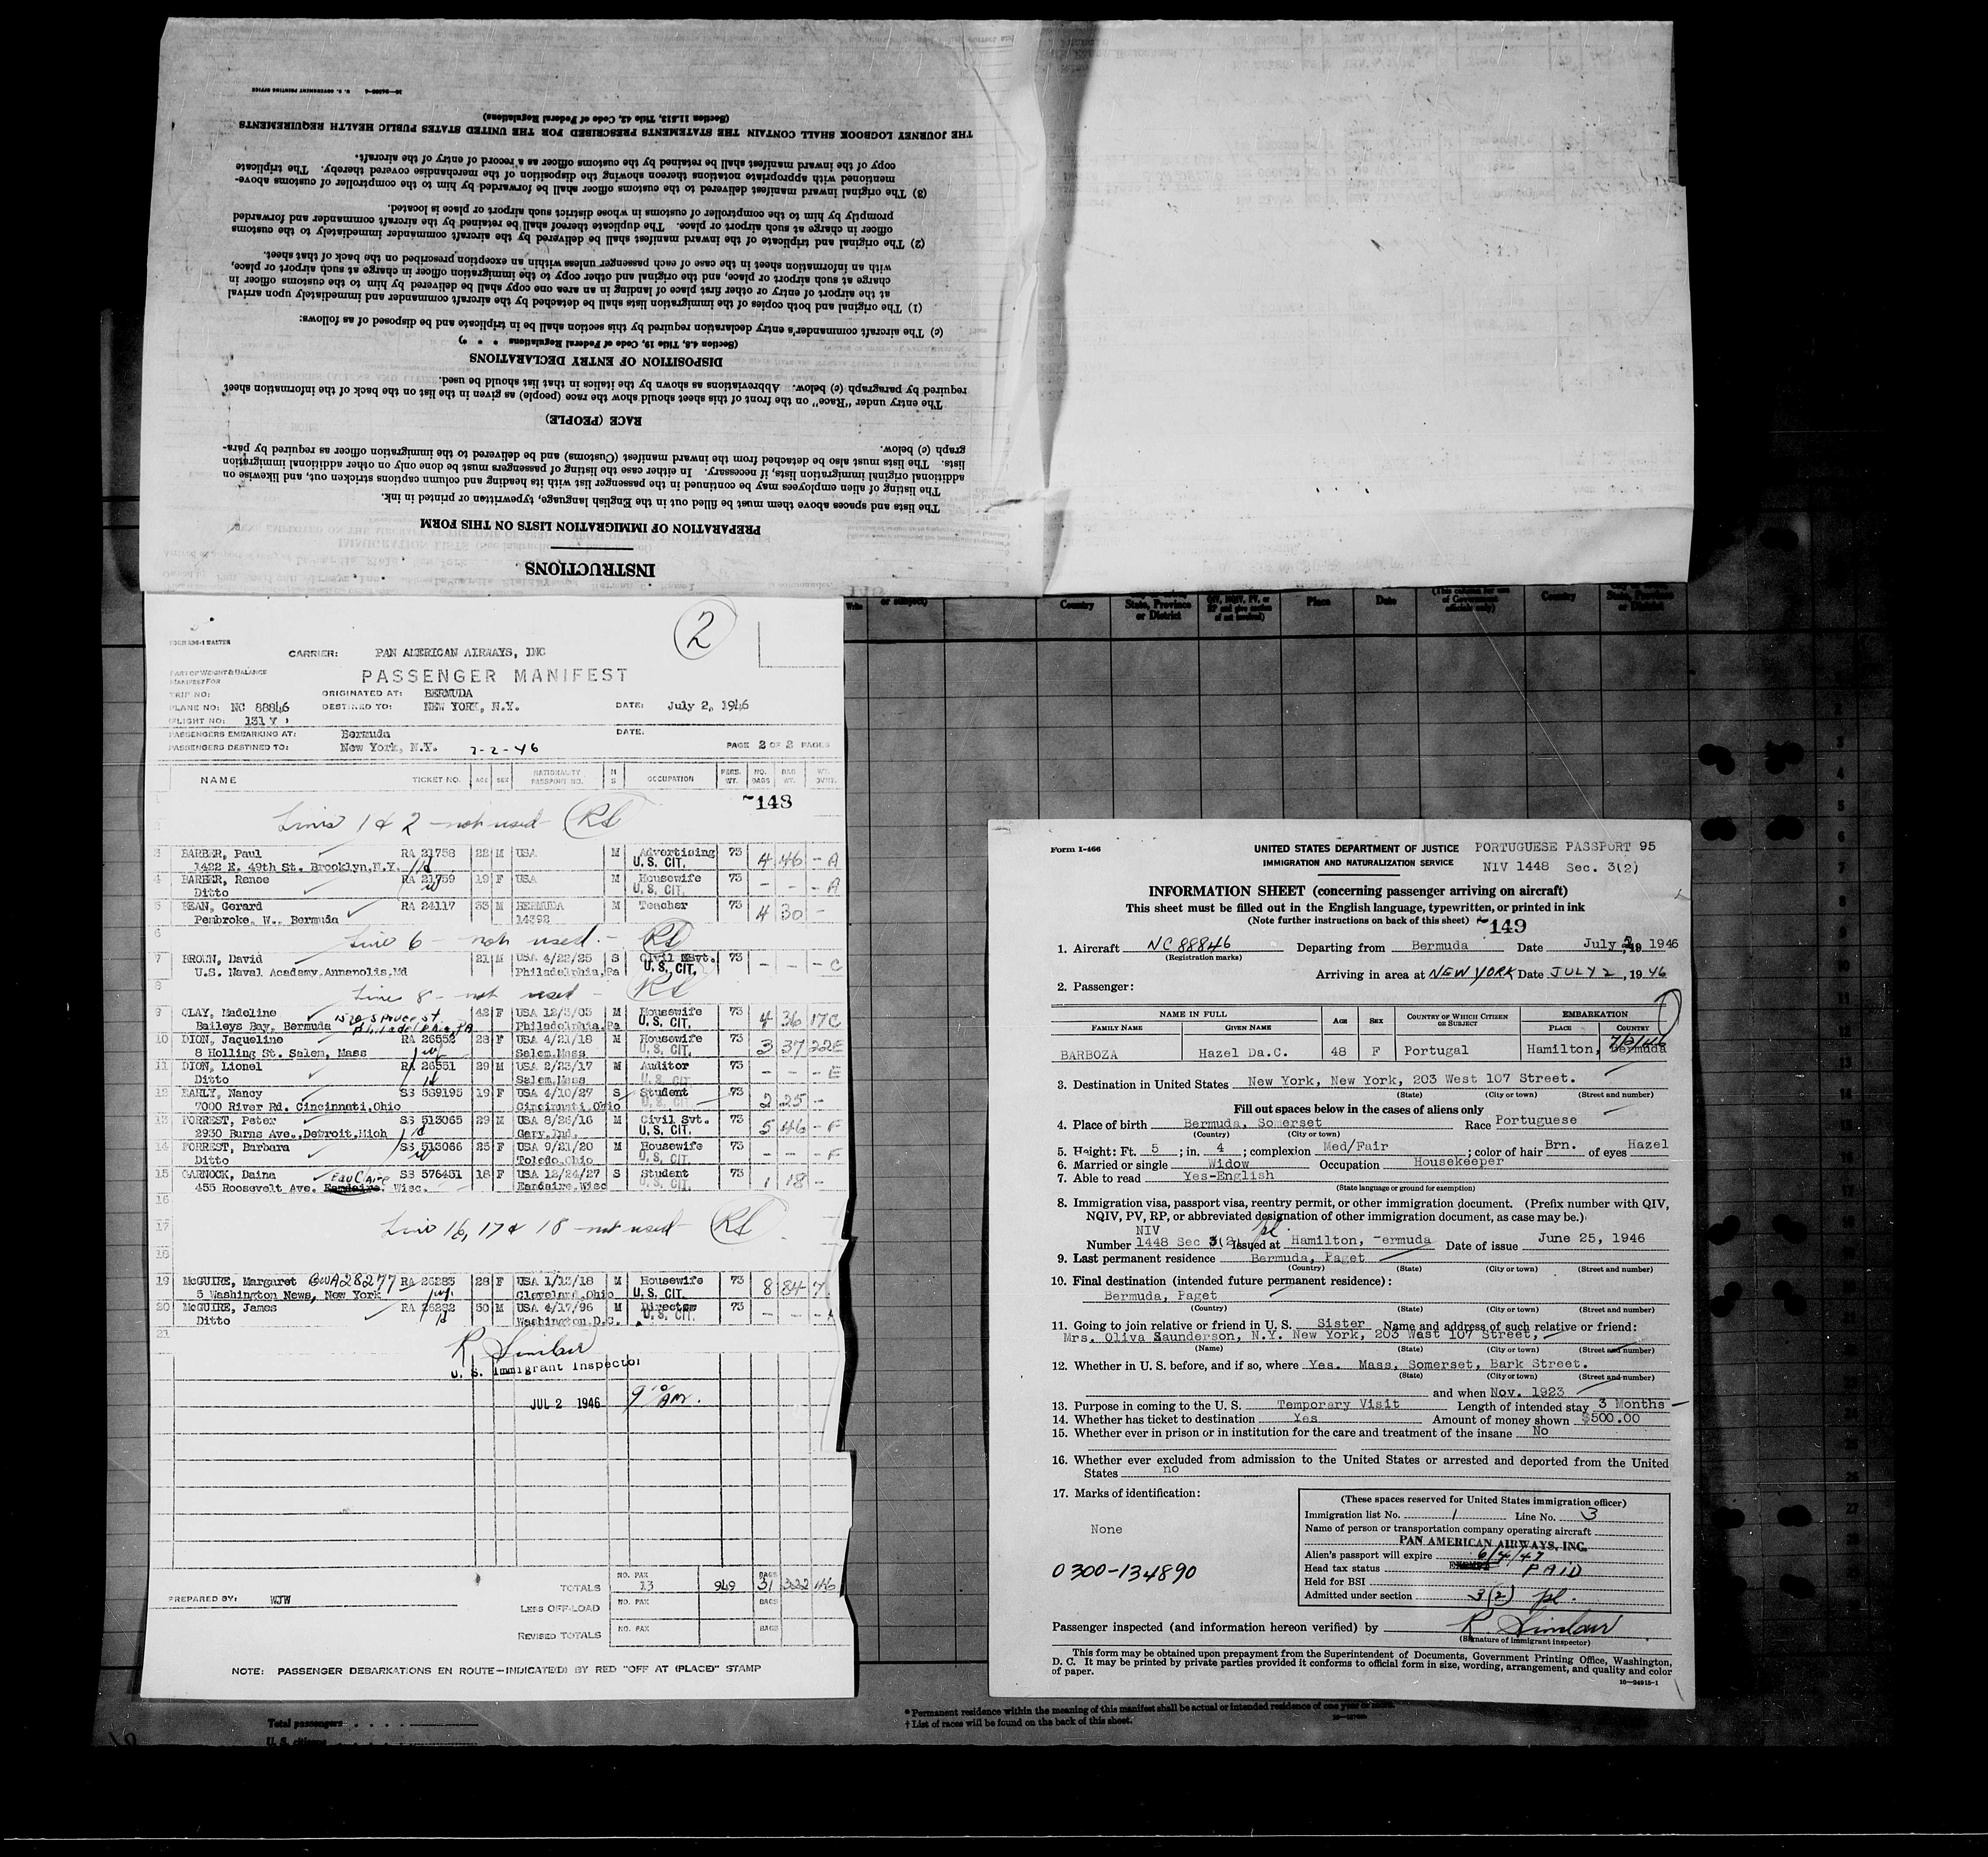 16—24566-4 U. S. GOVERNMENT PRINTING OFFICE
(Section 11.513, Title 42, Code of Federal Regulations)
THE JOURNEY LOGBOOK SHALL CONTAIN THE STATEMENTS PRESCRIBED FOR THE UNITED STATES PUBLIC HEALTH REQUIREMENTS
INSTRUCTIONS
PREPARATION OF IMMIGRATION LISTS ON THIS FORM
The lists and spaces above them must be filled out in the English language, typewritten or printed in ink.
The listing of alien employees may be continued in the passenger list with its heading and column captions stricken out, and likewise on
additional original immigration lists, if necessary. In either case the listing of passengers must be done only on other additional immigration
lists. The lists must also be detached from the inward manifest (Customs) and be delivered to the immigration officer as required by para-
graph (c) below.
RACE (PEOPLE)
The entry under "Race" on the front of this sheet should show the race (people) as given in the list on the back of the information sheet
required by paragraph (c) below. Abbreviations as shown by the italics in that list should be used.
DISPOSITION OF ENTRY DECLARATIONS
(Section 4.8, Title 19, Code of Federal Regulations * * *)
(c) The aircraft commander's entry declaration required by this section shall be in triplicate and be disposed of as follows:
(1) The original and both copies of the immigration lists shall be detached by the aircraft commander and immediately upon arrival
at the airport of entry or other first place of landing in an area one copy shall be delivered by him to the customs officer in
charge at such airport or place, and the original and other copy to the immigration officer in charge at such airport or place,
with an information sheet in the case of each passenger unless within an exception prescribed on the back of that sheet.
(2) The original and triplicate of the inward manifest shall be delivered by the aircraft commander immediately to the customs
officer in charge at such airport or place. The duplicate thereof shall be retained by the aircraft commander and forwarded
promptly by him to the comptroller of customs in whose district such airport or place is located.
(3) The original inward manifest delivered to the customs officer shall be forwarded by him to the comptroller of customs above-
mentioned with appropriate notations thereon showing the disposition of the merchandise covered thereby. The triplicate
copy of the inward manifest shall be retained by the customs officer as a record of entry of the aircraft.
2
CARRIER: PAN AMERICAN AIRWAYS, INC
PART OF WEIGHT & BALANCE
MANIFEST FOR
PASSENGER MANIFEST
TRIP NO: ORIGINATED AT: BERMUDA
PLANE NO: NC 88846 DESTINED TO: NEW YORK, N.Y. DATE: July 2, 1946
FLIGHT NO: 131 Y
PASSENGERS EMBARKING AT: Bermuda DATE:
PASSENGERS DESTINED TO: New York, N.Y. 7-2-46 PAGE 2 OF 2 PAGES
NAME TICKET NO. AGE SEX NATIONALITY PASSPORT NO. M S OCCUPATION PERS. WT. NO. BAGS BAG WT. WT. OVWT.
148
Lines 1 & 2 - not used RS
3 BARBER, Paul RA 21758 22 M USA M Advertising 73 4 46 - A
1422 E. 49th St. Brooklyn,N.Y. U. S. CIT.
4 BARBER, Renee RA 21759 19 F USA M Housewife 73 - - - A
Ditto U. S. CIT.
5 BEAN, Gerard RA 24117 33 M BERMUDA M Teacher 73 4 30 -
Pembroke, W., Bermuda 14392
6 Line 6 - not used - RS
7 BROWN, David 21 M USA 4/22/25 S Civil Svt. 73 - - - C
U.S. Naval Academy,Annapolis,Md Philadelphia,Pa U. S. CIT.
8 Line 8 - not used - RS
9 CLAY, Madoline 42 F USA 12/3/03 M Housewife 73 4 36 17 C
Baileys Bay, Bermuda 1520 Spruce St Philadelphia, PA Philadelphia,Pa U. S. CIT.
10 DION, Jaqueline RA 26552 28 F USA 4/21/18 M Housewife 73 3 37 22 E
8 Holling St. Salem, Mass Salem,Mass U. S. CIT.
11 DION, Lionel RA 26551 29 M USA 2/23/17 M Auditor 73 - - - E
Ditto Salem,Mass U. S. CIT.
12 EARLY, Nancy SS 589195 19 F USA 4/10/27 S Student 73 2 25 -
7000 River Rd. Cincinnati,Ohio Cincinnati,Ohio U. S. CIT.
13 FORREST, Peter SS 513065 29 M USA 8/26/16 M Civil Svt. 73 5 46 - F
2930 Burns Ave.,Detroit,Mich Gary,Ind. U. S. CIT.
14 FORREST, Barbara SS 513066 25 F USA 9/21/20 M Housewife 73 - - - F
Ditto Toledo,Ohio U. S. CIT.
15 GARNOCK, Daina SS 576451 18 F USA 12/24/27 S Student 73 1 18 -
455 Roosevelt Ave. Eau Claire Eardaire, Wisc. Eardaire,Wisc U. S. CIT.
16
17 Line 16, 17 & 18 - not used RS
18
19 McGUIRE, Margaret BWA28277 RA 26283 28 F USA 1/13/18 M Housewife 73 8 84 7
5 Washington News, New York Cleveland,Ohio U. S. CIT.
20 McGUIRE, James RA 26282 50 M USA 4/17/96 M Director 73 - - -
Ditto Washington,D.C. U. S. CIT.
21
R. Sinclair
U. S. Immigrant Inspector
JUL 2 1946 9 10 AM.
TOTALS NO. PAX 13 949 BAGS 31 322 46
PREPARED BY: WJW
LESS OFF-LOAD NO. PAX BAGS
REVISED TOTALS NO. PAX BAGS
NOTE: PASSENGER DEBARKATIONS EN ROUTE—INDICATE(D) BY RED "OFF AT (PLACE)" STAMP
Total passengers . . . .
U. S. citizens
or subject)
Country
State, Province
or District
Place
Date
(This column for use
of Government
officials only)
Country
State, Province
or District
Form I-466
UNITED STATES DEPARTMENT OF JUSTICE PORTUGUESE PASSPORT 95
IMMIGRATION AND NATURALIZATION SERVICE NIV 1448 Sec. 3(2)
INFORMATION SHEET (concerning passenger arriving on aircraft)
This sheet must be filled out in the English language, typewritten, or printed in ink
(Note further instructions on back of this sheet) 149
1. Aircraft NC 88846 Departing from Bermuda Date July 2, 19 1946
(Registration marks)
Arriving in area at NEW YORK Date JULY 2, 19 46
2. Passenger:
NAME IN FULL AGE SEX COUNTRY OF WHICH CITIZEN OR SUBJECT EMBARKATION
FAMILY NAME GIVEN NAME PLACE COUNTRY
7/2/46
BARBOZA Hazel Da.C. 48 F Portugal Hamilton, Bermuda
3. Destination in United States New York, New York, 203 West 107 Street.
(State) (City or town) (Street and number)
Fill out spaces below in the cases of aliens only
4. Place of birth Bermuda, Somerset Race Portuguese
(Country) (City or town)
5. Height: Ft. 5 ; in. 4 ; complexion Med/Fair ; color of hair Brn. of eyes Hazel
6. Married or single Widow Occupation Housekeeper
7. Able to read Yes-English
(State language or ground for exemption)
8. Immigration visa, passport visa, reentry permit, or other immigration document. (Prefix number with QIV,
NQIV, PV, RP, or abbreviated designation of other immigration document, as case may be.)
NIV
Number 1448 Sec 3(2) Issued at Hamilton, -ermuda Date of issue June 25, 1946
9. Last permanent residence Bermuda, Paget
(Country) (State) (City or town) (Street and number)
10. Final destination (intended future permanent residence):
Bermuda, Paget
(Country) (State) (City or town) (Street and number)
11. Going to join relative or friend in U. S. Sister Name and address of such relative or friend:
Mrs. Oliva Saunderson, N.Y. New York, 203 West 107 Street,
(Name) (State) (City or town) (Street and number)
12. Whether in U. S. before, and if so, where Yes. Mass, Somerset, Bark Street.
(State) (City or town) (Street and number)
and when Nov. 1923
13. Purpose in coming to the U. S. Temporary Visit Length of intended stay 3 Months
14. Whether has ticket to destination Yes Amount of money shown $500.00
15. Whether ever in prison or in institution for the care and treatment of the insane No
16. Whether ever excluded from admission to the United States or arrested and deported from the United
States no
17. Marks of identification:
None
0300-134890
(These spaces reserved for United States immigration officer)
Immigration list No. 1 Line No. 3
Name of person or transportation company operating aircraft
PAN AMERICAN AIRWAYS, INC.
Alien's passport will expire 6/4/47
Head tax status PAID
Held for BSI
Admitted under section 3(2) pl.
Passenger inspected (and information hereon verified) by R. Sinclair
(Signature of immigrant inspector)
This form may be obtained upon prepayment from the Superintendent of Documents, Government Printing Office, Washington,
D. C. It may be printed by private parties provided it conforms to official form in size, wording, arrangement, and quality and color
of paper.
16—24915-1
* Permanent residence within the meaning of this manifest shall be actual or intended residence of one year or more.
† List of races will be found on the back of this sheet.